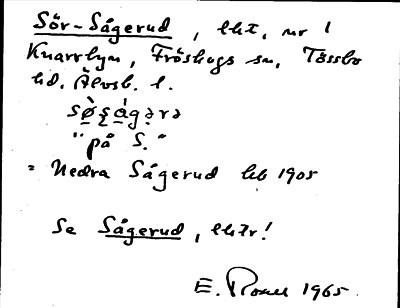 Sör-Sågerud, lht, nr 1
Knarrbyn, Fröskogs sn, Tössbo
hd. Älvsb. l.
sø̀sạ́gərə
"på S."
= Nedra Sågerud hb 1905
Se Sågerud, lhtr!
E. 1965